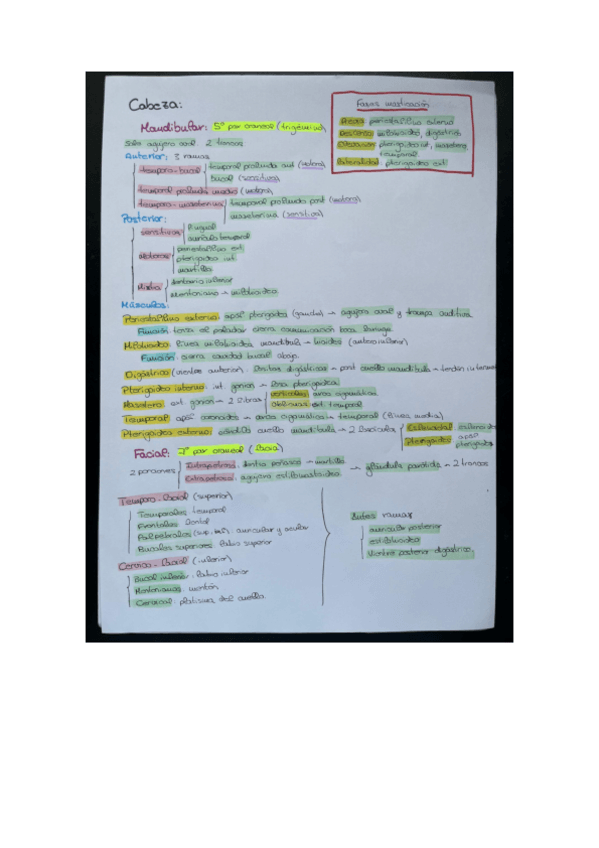 Cabeza:
Fases masticación
periestafilino externo
Descenso milohioideo, digástrico
Elevación pterigoideo int, masetero
temporal
Lateralidad pterigoideo ext
Mandibular: 5º par craneal (trigémino)
Sale agujero oval 2 troncos
Anterior: 3 ramas
temporo-bucal temporal profundo ant (motora)
bucal (sensitiva)
temporal profundo medio (motora)
temporo-maseterino temporal profundo post (motora)
maseterina (sensitiva)
Posterior:
sensitivos lingual
auriculo temporal
Motores periestafilino ext
pterigoideo int
martillo
Mixto dentario inferior
Mentoniano milohioideo
Músculos:
Periestafilino externo: apóf pterigoides (gancho) → agujero oval y trompa auditiva
Función tensa el paladar cierra comunicación boca faringe
Milohioideo línea milohioidea mandíbula → hioides (antero inferior)
Función: cierra cavidad bucal abajo
Digástrico (vientre anterior). fositas digástricas → post cuello mandíbula → tendón
Pterigoideo interno int. gonion → fosa pterigoidea
Masetero ext. gonion → 2 fibras verticales arco cigomático
oblicuas ext. temporal
Temporal apóf coronoides → arco cigomático → temporal (línea media)
Pterigoideo externo cóndilo cuello mandíbula → 2 fascículos Esfenoidal esfenoides
Pterigoideo apóf
pterigoides
Facial: 7º par craneal (facial)
2 porciones Intrapetrosa. dentro peñasco → martillo
Extrapetrosa. agujero estilomastoideo → glándula parótida → 2 troncos
Temporo-facial (superior)
Temporales temporal
Frontales frontal
Palpebrales (sup, inf). auricular y ocular
Bucales superiores. labio superior
Antes ramas
auricular posterior
estilohioideo
Vientre posterior digástrico,
Cervico-facial (inferior)
Bucal inferior. labio inferior
Mentonianos. mentón
Cervical. platisma del cuello